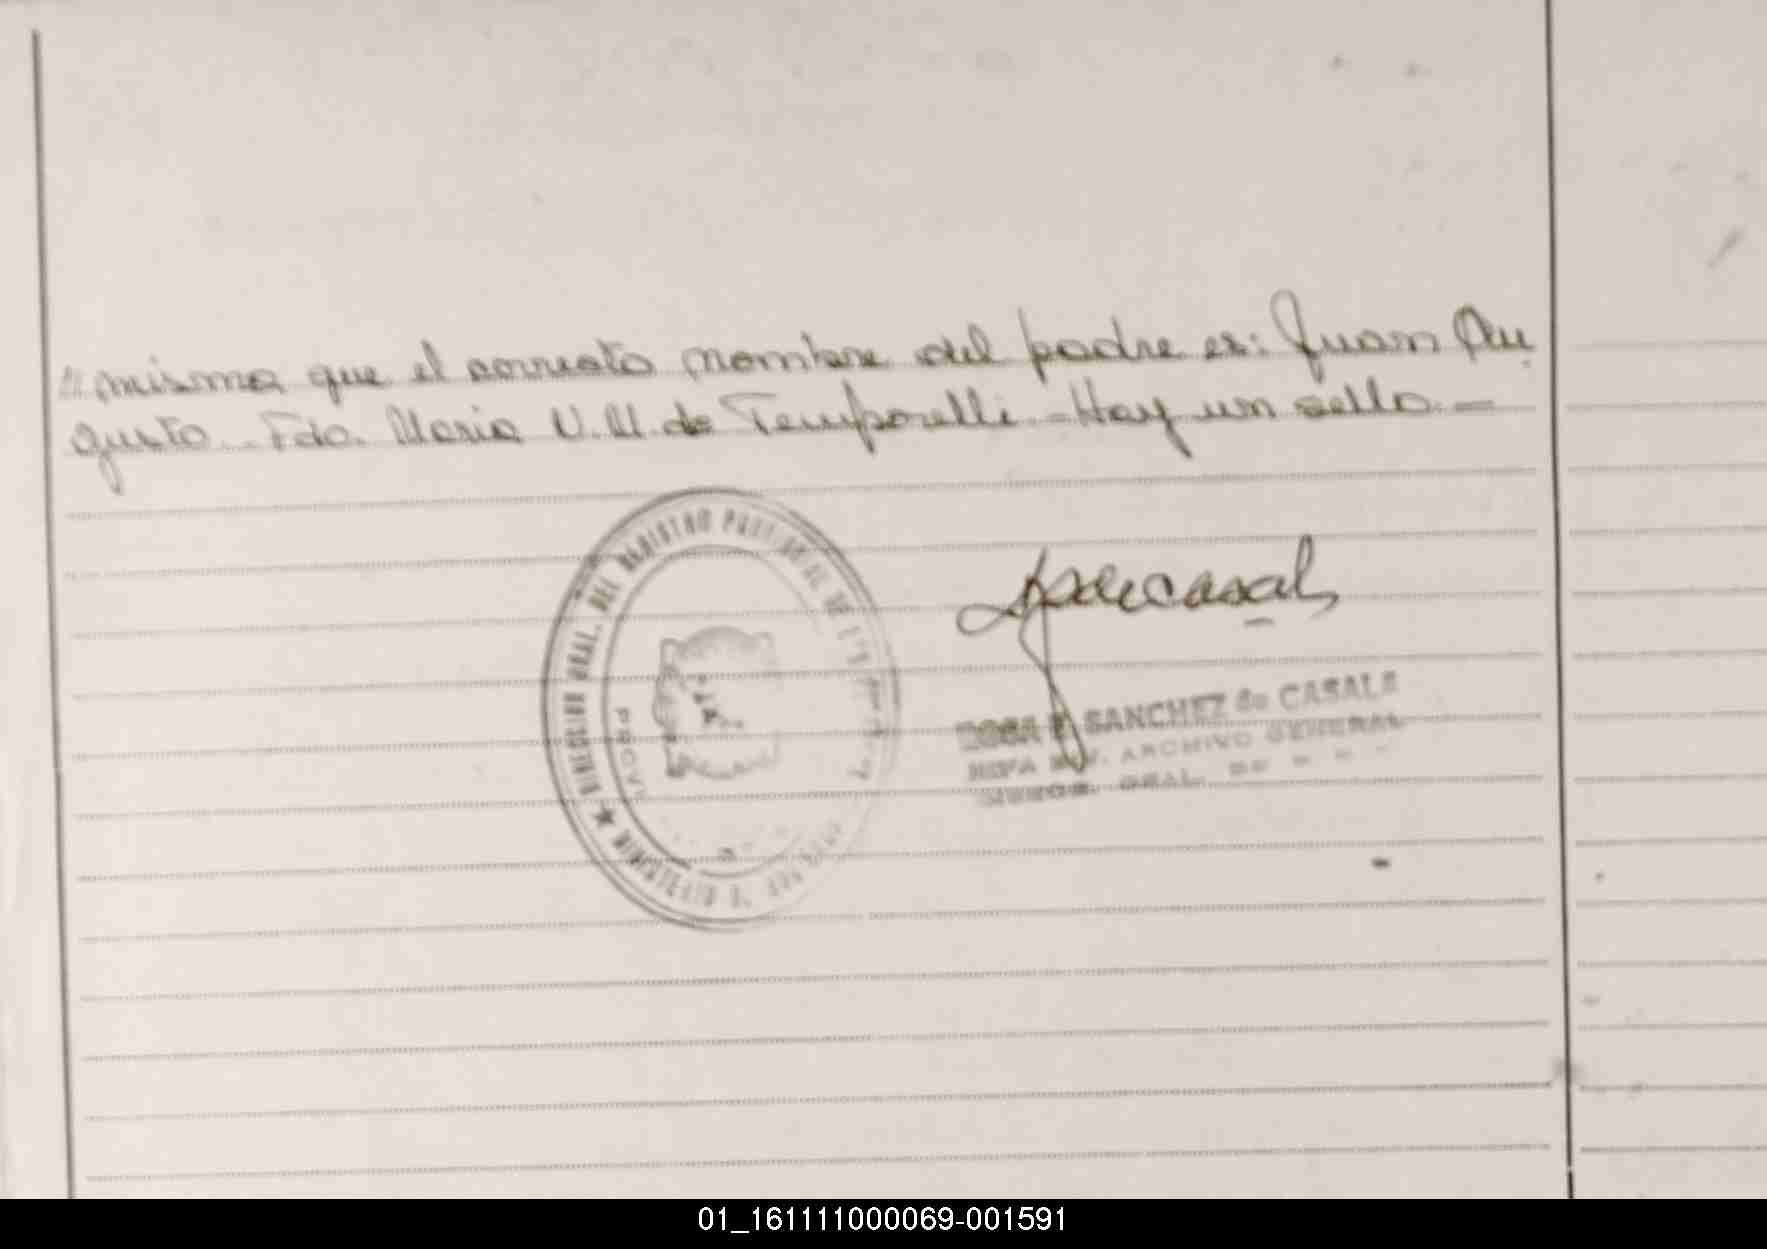 // misma que el correcto nombre del padre es: Juan Au
gusto.- Fdo. Maria V. M. de Temporelli.- Hay un sello.-
DIRECCION GRAL. DEL REGISTRO PROVINCIAL DE LAS
PROV.
ROSA SANCHEZ de CASALS
ARCHIVO GENERAL
GRAL.
01_161111000069-001591